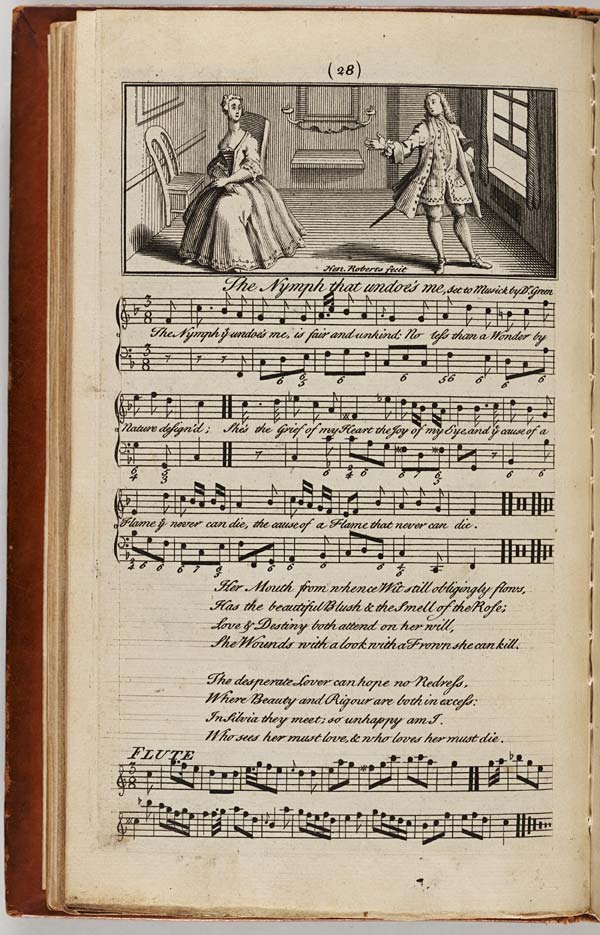 (28)
Hen. Roberts fecit
The Nymph that undoe's me, set to Musick by Dr. Green
The Nymph ẙ undoe's me, is fair and unkind; No less than a Wonder by
Nature design'd; She's the Grief of my Heart the Joy of my Eye, and ẙ cause of a
Flame ẙ never can die, the cause of a Flame that never can die.
Her Mouth from whence Wit still obligingly flows,
Has the beautiful Blush & the Smell of the Rose;
Love & Destiny both attend on her will,
She Wounds with a look with a Frown she can kill.
The desperate Lover can hope no Redress,
Where Beauty and Rigour are both in excess:
In Silvia they meet; so unhappy am I.
Who sees her must love, & who loves her must die.
FLUTE